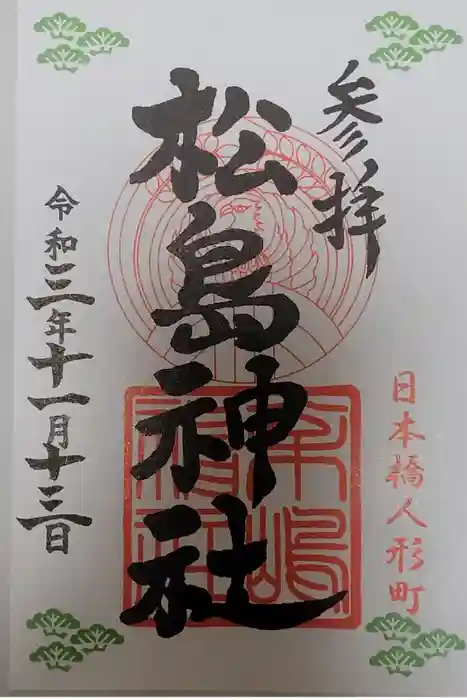 参拝
日本橋人形町
松島神社
松嶋神社
令和三年十一月十三日